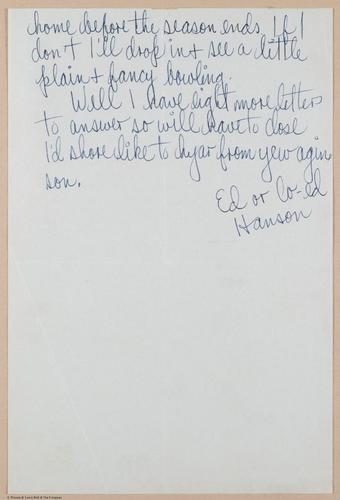 home before the season ends. If I
don't I'll drop in + see a little
plain + fancy bowling.
Well I have eight more letters
to answer so will have to close
I'd shore like to hyar from yew agin
son.
Ed or Co-ed
Hanson